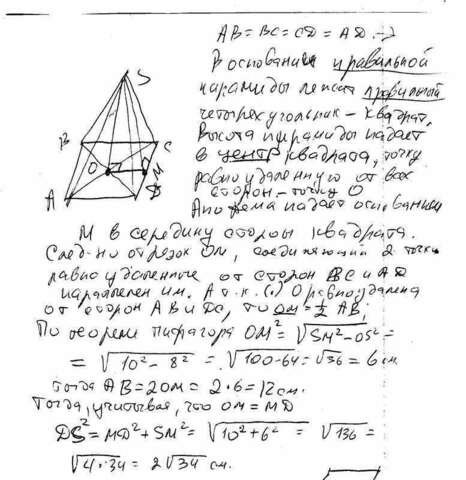 AB = BC = CD = AD. →
В основании правильной
пирамиды лежит правильный
четырехугольник - квадрат.
Высота пирамиды падает
в центр квадрата, точку
равноудаленную от всех
сторон - точку О
Апофема падает основанием
S
B
C
O
M
A
D
М в середину стороны квадрата.
След-но отрезок ОМ, соединяющий 2 точки
равноудаленные от сторон BC и AD
параллелен им. А т.к. (.) О равноудалена
от сторон AB и DC, то OM = 1/2 AB;
По теореме Пифагора OM² = √SM² - OS² =
= √10² - 8² = √100-64 = √36 = 6 см
Тогда AB = 2OM = 2·6 = 12 см.
Тогда, учитывая, что OM = MD
DS² = MD² + SM² = √10² + 6² = √136 =
√4·34 = 2√34 см.